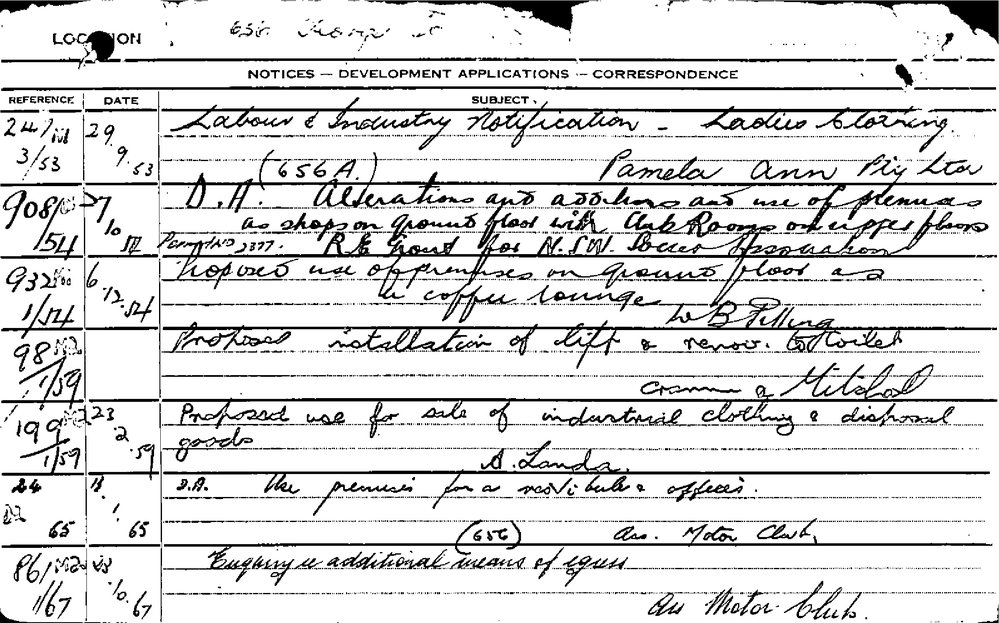 LOCATION 656 George St
NOTICES — DEVELOPMENT APPLICATIONS — CORRESPONDENCE
REFERENCE DATE SUBJECT.
247 29 Labour & Industry Notification - Ladies Clothing.
3/53 9 53 (656A.) Pamela Ann Pty Ltd
908/ 27 D.A. Alterations and additions and use of premises
/54 10 54 as shops on ground floor with Club Rooms on upper floors
Permit No 2377. R E Grout for N.S.W. Soccer Association
932 6 Proposed use of premises on ground floor as
1/54 12.54 a coffee lounge
W B Pilling
98 Proposed installation of lift & renov. to toilet
1/59 & Mitchell
199 23 Proposed use for sale of industrial clothing & disposal
1/59 2.59 goods
A. Landa.
24 D.A. Use premises for a vestibule & offices.
65 1 65 (656) Aus. Motor Club.
861 Enquiry re additional means of egress
1/67 10.67 Aus Motor Club.